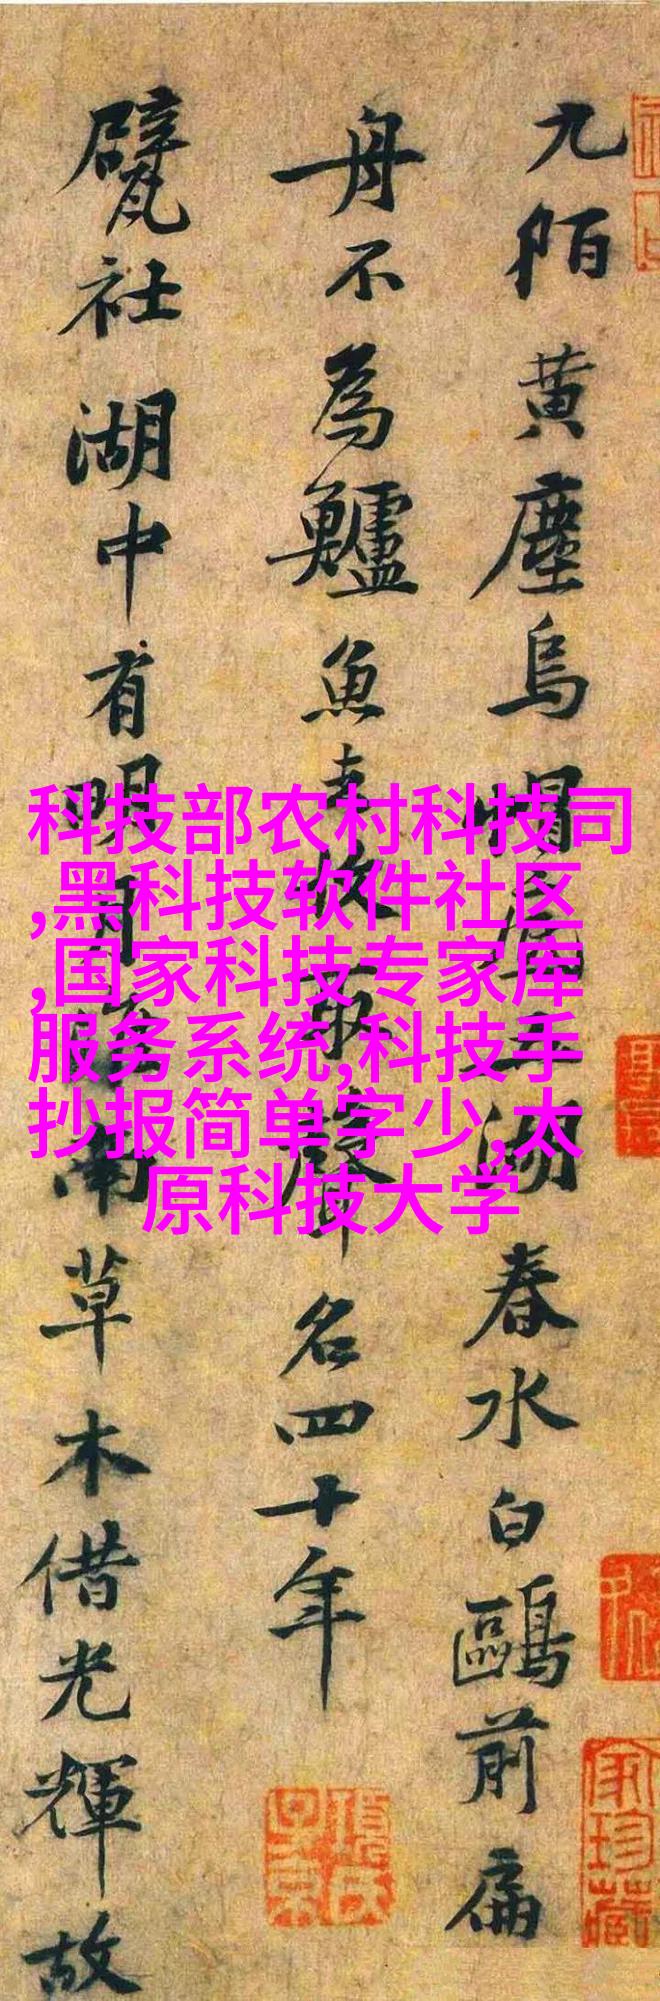 九陌黄塵烏帽底五湖春水白鷗前扁
舟不為鱸魚去收取聲名四十年
甓社湖中有明月淮南草木借光輝故
科技部农村科技司
,黑科技软件社区
,国家科技专家库
服务系统,科技手
抄报简单字少,太
原科技大学
家珍藏